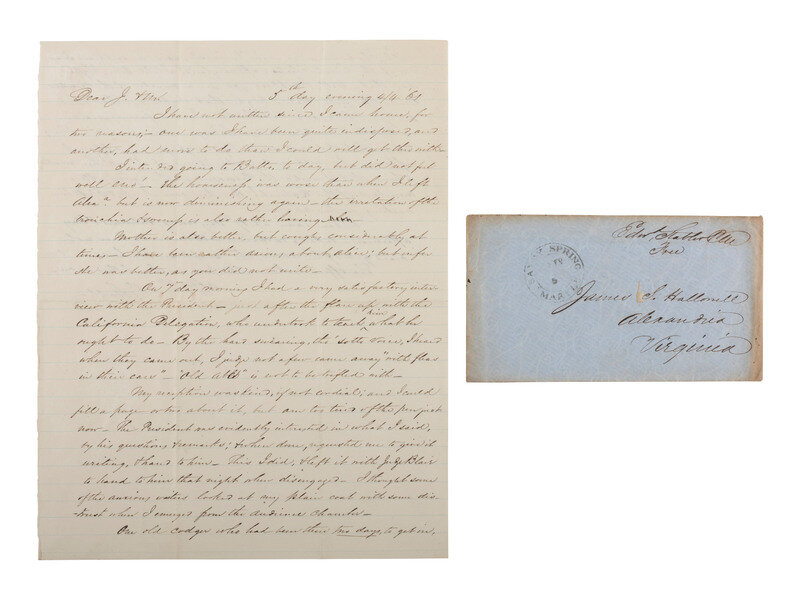 Dear J. & M. 5th day evening 4/4. 61
I have not written since I came home, for
two reasons,— one was I have been quite indisposed, and
another, had more to do than I could well get thro with—
I intended going to Balto. to day, but did not feel
well eno'— The hoarseness was worse than when I left
Alexa. but is now diminishing again— the irritation of the
bronchia is also rather
Mother is also better, but coughs considerably at
times— I have been rather about Alice; but infer
she was better, as you did not write—
On 7 day morning I had a very satisfactory inter-
view with the President— just after the flare up with the
California Delegation, who undertook to teach him what he
ought to do— By the hard swearing, tho' "sotto voce, I heard
when they came out, I judge not a few came away "with fleas
in their ears"— "Old Abe" is not to be trifled with—
My reception was kind, if not cordial; and I could
fill a page or two about it, but am too tired of the pen just
now— The President was evidently interested in what I said,
by his questions & remarks; & when done, requested me to give it
writing, & hand to him— This I did, & left it with Judge Blair
to hand to him that night when disengaged— I thought some
of the anxious waiters looked at my plain coat with some dis-
trust when I emerged from the audience chamber—
One old codger who had been there two days to get in,
Edwd. Stabler PM
Free
SANDY SPRING
18
MAR
James S. Hallowell
Alexandria
Virginia